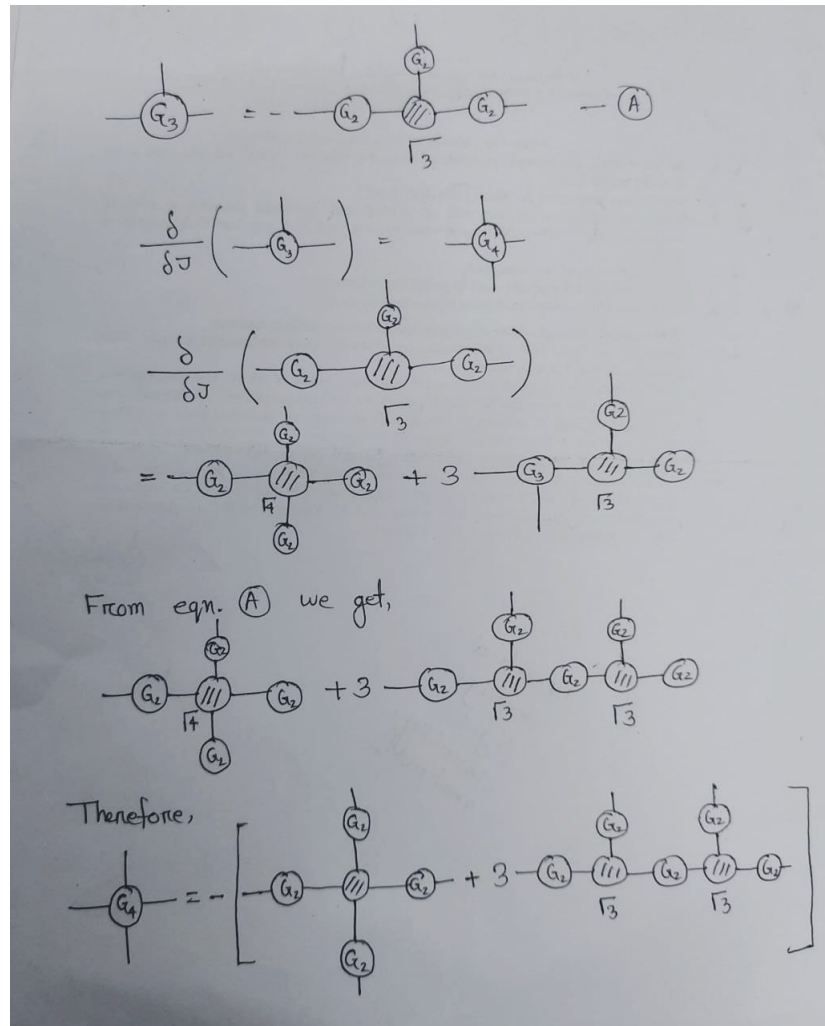 G₃ = - G₂ G₂ G₂ Γ₃ - Ⓐ
δ/δJ ( G₃ ) = G₄
δ/δJ ( G₂ G₂ G₂ Γ₃ )
= G₂ G₂ G₂ G₂ Γ4 + 3 G₃ G2 G₂ Γ3
From eqn. Ⓐ we get,
G₂ G2 G₂ G₂ Γ4 + 3 G₂ G₂ Γ3 G₂ G2 Γ3 G2
Therefore,
G₄ = - [ G₂ G₂ G₂ G₂ + 3 G₂ G₂ Γ3 G₂ G2 Γ3 G₂ ]